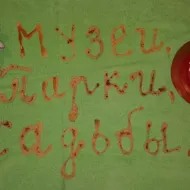 Музеи,
Парки,
садьбы.